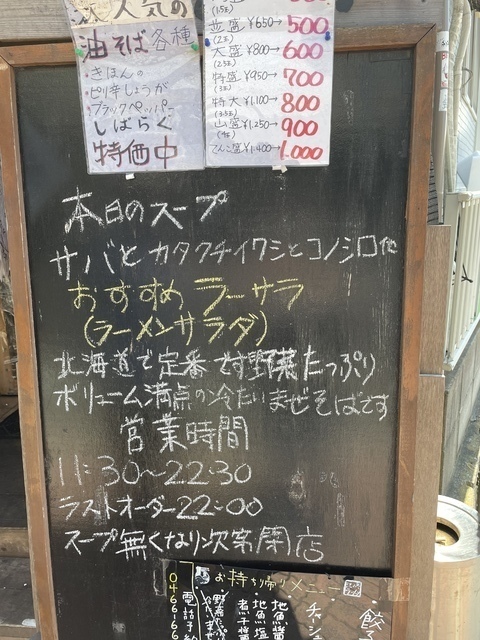 人気の
油そば各種
・きほんの
・ピリ辛しょうが
・ブラックペッパー
しばらく
特価中
(1.5玉)
並盛 ¥650→ 500
(2玉)
大盛 ¥800→ 600
(2.5玉)
特盛 ¥950→ 700
(3玉)
特大 ¥1,100→ 800
(3.5玉)
山盛 ¥1,250→ 900
(4玉)
てんこ盛 ¥1,400→ 1,000
本日のスープ
サバとカタクチイワシとコノシロ他
おすすめ ラーサラ
(ラーメンサラダ)
北海道で定番です野菜たっぷり
ボリューム満点の冷たいまぜそばです
営業時間
11:30〜22:30
ラストオーダー22:00
スープ無くなり次第閉店
お持ち帰りメニュー
餃子
チャーシュー
地魚醤
地魚塩
煮干
野菜
電話
046666